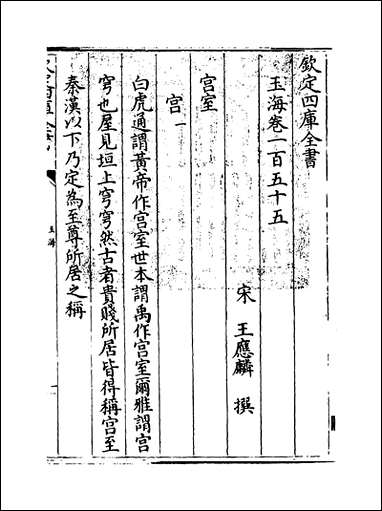 欽定四庫全書
玉海卷一百五十五
宋 王應麟 撰
宮室
宮一
白虎通謂黃帝作宮室世本謂禹作宮室爾雅謂宮
穹也屋見垣上穹穹然古者貴賤所居皆得稱宮至
秦漢以下乃定為至尊所居之稱
玉海
一